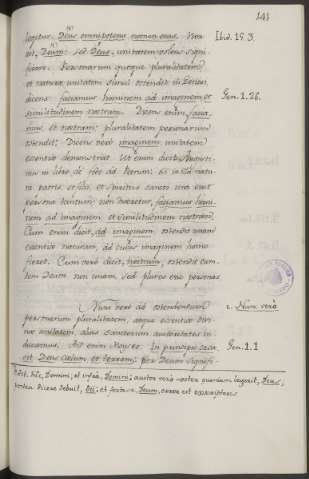 141
legitur, Deus omnipotens nomen eius. Non Ibid. 15.3.
ait, Deum: sed Deus, unitatem volens signi-
ficare. Personarum quoque pluralitatem
et naturae unitatem simul ostendit in Genesi,
dicens: faciamus hominem ad imaginem et Gen. 1.26.
similitudinem nostram. Dicens enim, facia-
mus, et nostram, pluralitatem personarum
ostendit; Dicens vero imaginem, unitatem
essentiae demonstrat. Ut enim dicit Augusti-
nus in libro de fide ad Petrum: Si in illa natu-
ra patris et filii et spiritus sancti una esset
persona tantum, non diceretur, faciamus homi-
nem ad imaginem et similitudinem nostram.
Cum enim dicit, ad imaginem, ostendit unam
essentiae naturam, ad cuius imaginem homo
fieret. Cum vero dicit, nostram, ostendit eun-
dem Deum non unam, sed plures esse personas
Nunc vero ad ostendendam c. Nunc verò
personarum pluralitatem, atque essentiae divi-
nae unitatem, alias Sanctorum auctoritates in-
ducamus. Ait enim Moyses: In principio crea- Gen. 1.1
vit Deus caelum, et terram; per Deum signifi-
Dominus; et infra, Domini; autor verò noster quoniam legerit, Deus;
postea dicere debuit, Dei; et postea Deum, errore est exscriptoris